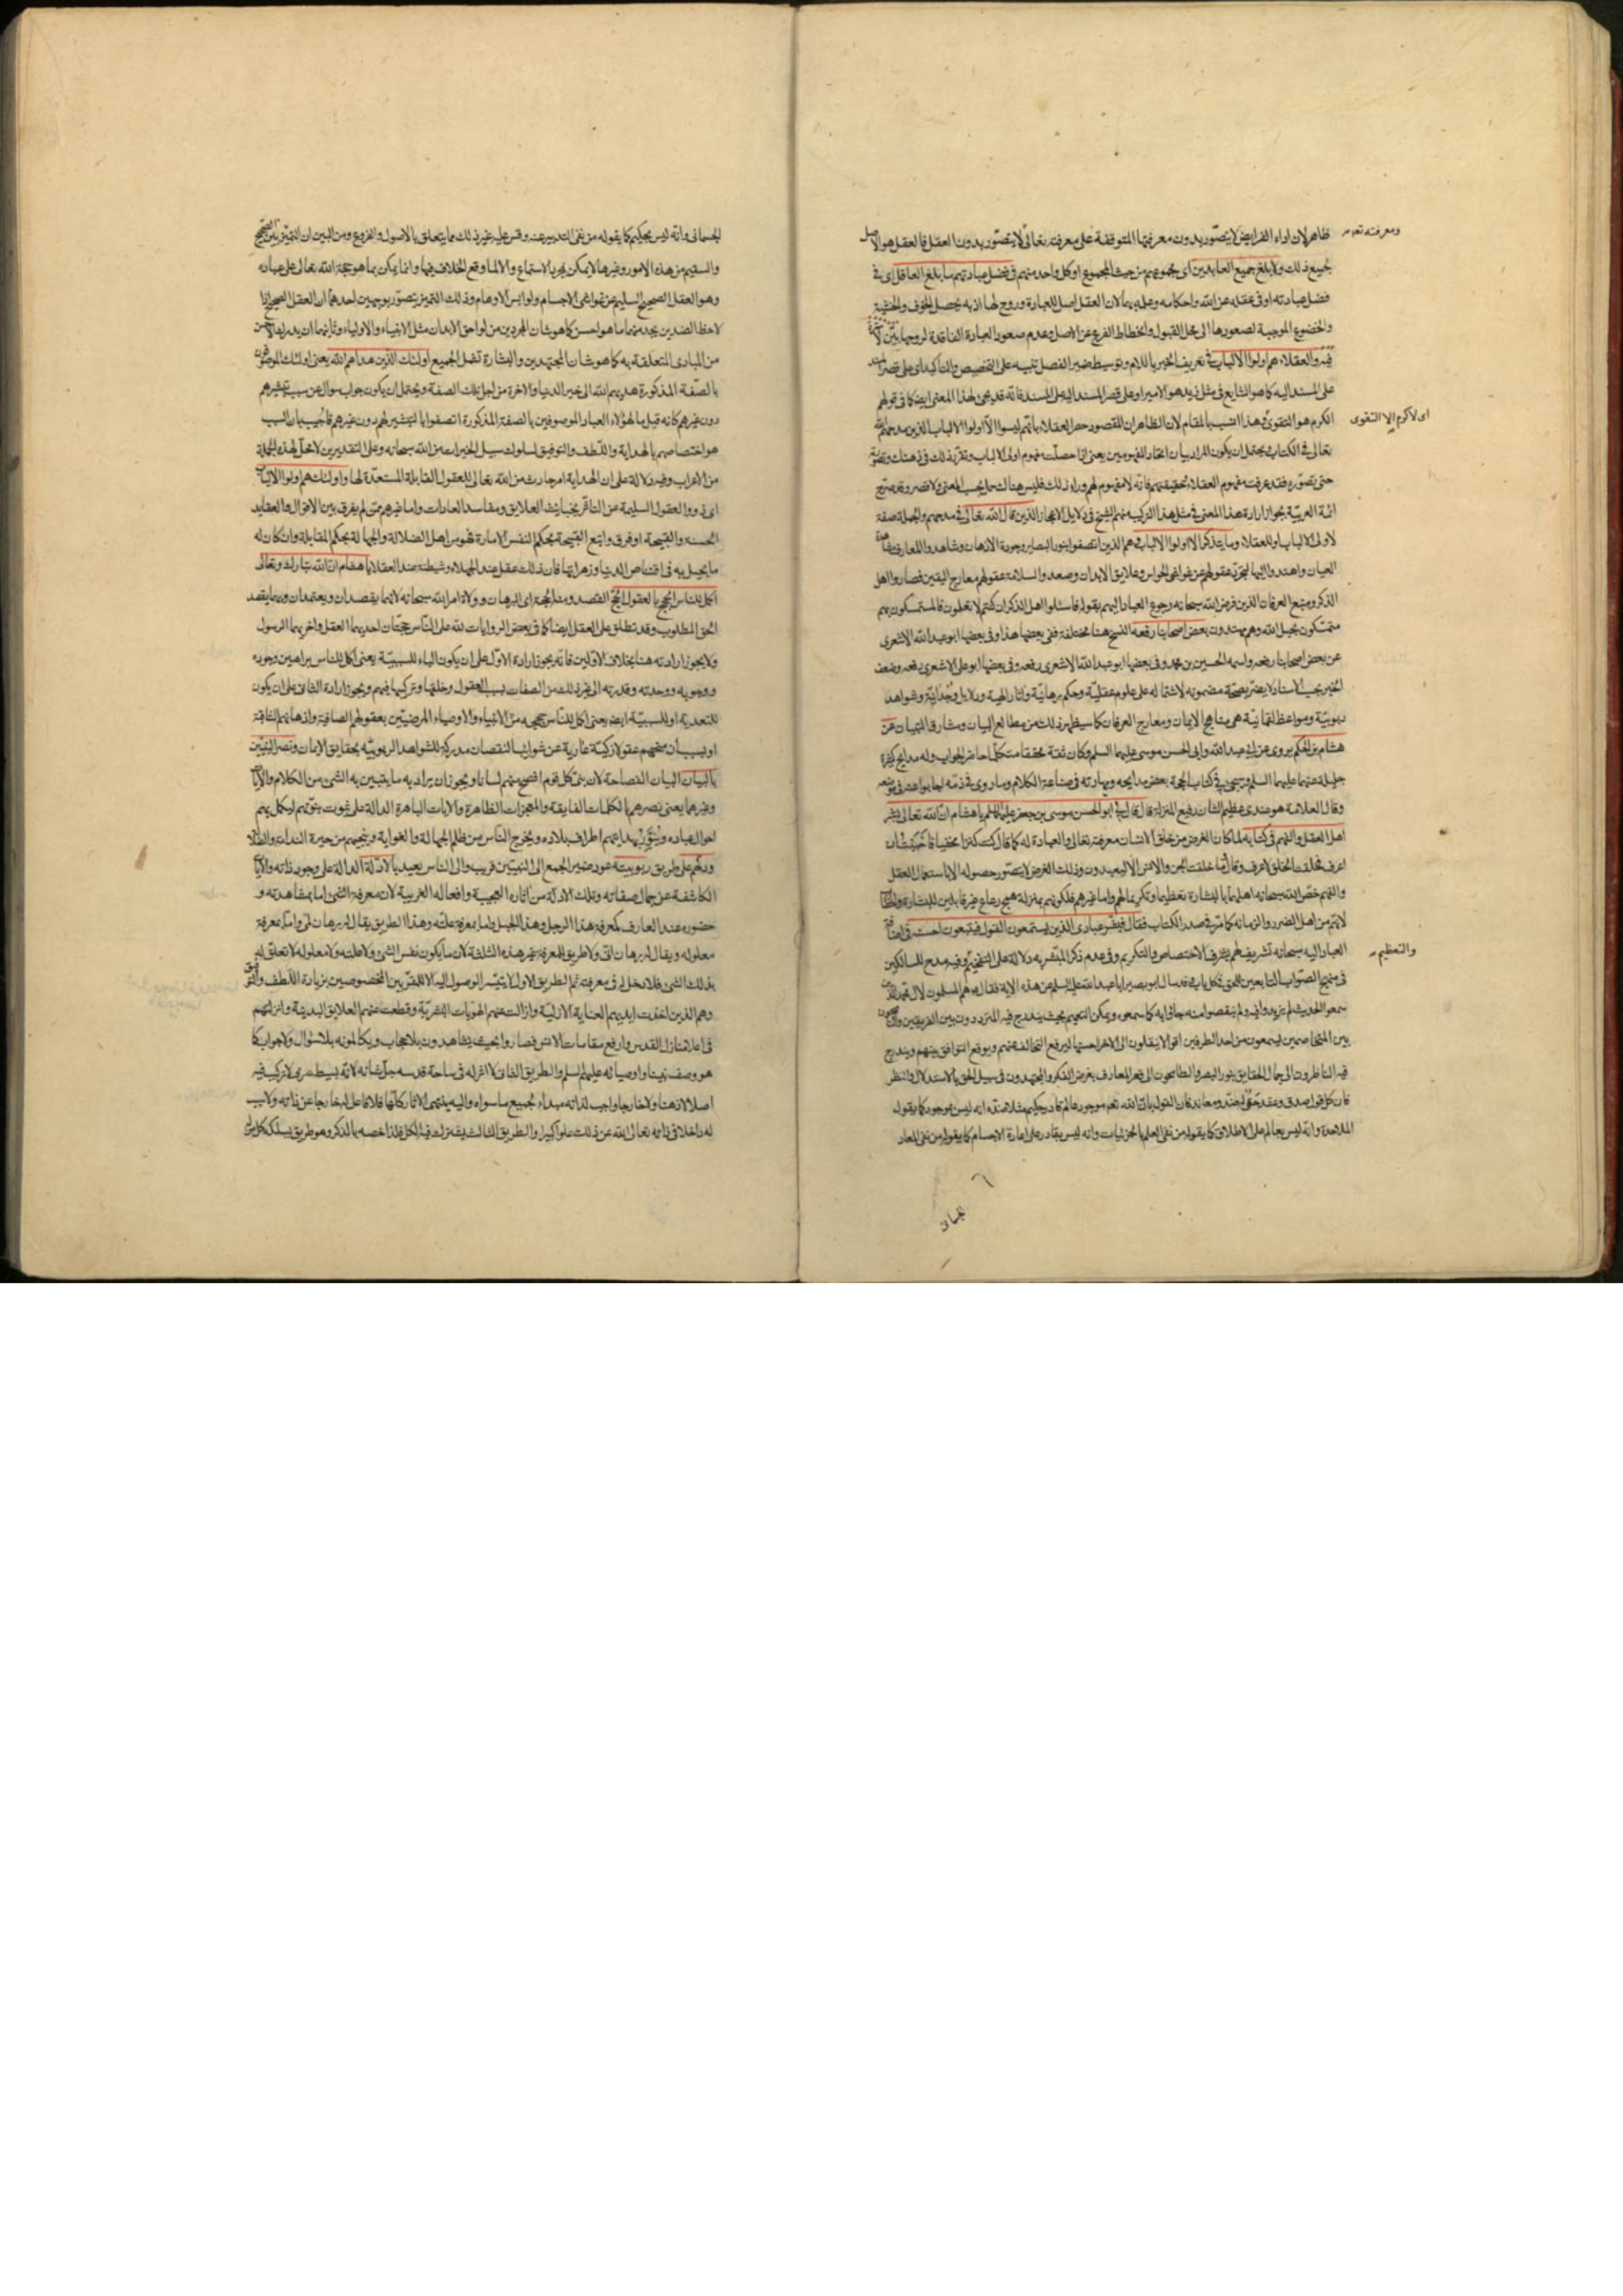 ظاهر لان اداء الفرايض لا يتصور بدون معرفتها المتوقفة على معرفته تعالى لا يتصور بدون العقل فالعقل هو الاصل
ومعرفته تعم
لجميع ذلك ولا بلغ جميع العابدين اى مجموعهم من حيث المجموع او كل واحد منهم فى فضل عبادتهم ما بلغ العاقل اى فى
فضل عبادته او فى عقله عن الله واحكامه وعلمه بها لان العقل اصل للعبادة وروح لها اذ به يحصل الخوف والخشية
والخضوع الموجبة لصعودها الى محل القبول وانحطاط الفرع عن الاصل وعدم صعود العبادة الفاقدة لروحها بين
والعقلاء هم اولوا الالباب فى تعريف الخبر باللام وتوسيط ضمير الفصل تنبيه على التخصيص والتاكيد اى على قصر المسند
على المسند اليه كما هو الشايع فى مثل زيد هو الامير او على قصر المسند اليه على المسند فانه قد يجئ لهذا المعنى ايضا كما فى قولهم
الكرم هو التقوى وهذا انسب بالمقام لان الظاهر ان المقصود حصر العقلاء بانهم ليسوا الا اولوا الالباب الذين مدحهم الله
اى لا كرم الا التقوى
تعالى فى الكتاب ويحتمل ان يكون المراد بيان اتحاد المفهومين يعنى اذا حصلت مفهوم اولى الالباب وتقرر ذلك فى ذهنك وتصورته
حق تصوره فقد عرفت مفهوم العقلاء وحقيقتهم فانه لا مفهوم لهم وراء ذلك فليس هناك حمل بحسب المعنى ولا قصر وقد صرح
ائمة العربية بجواز ارادة هذا المعنى فى مثل هذا التركيب منهم الشيخ فى دلايل الاعجاز الذين قال الله تعالى فى مدحهم والجملة صفة
لاولى الالباب او للعقلاء وما يتذكر الا اولوا الالباب هم الذين اتصفوا بنور البصاير وجودة الاذهان وشاهدوا المعارف مشاهدة
العيان واهتدوا اليها لتجرد عقولهم عن غواشى الحواس وعلايق الابدان وصعدوا بسلامة عقولهم معارج اليقين فصاروا اهل
الذكر ومنبع العرفان الذين فرض الله سبحانه رجوع العباد اليهم بقوله فاسئلوا اهل الذكر ان كنتم لا تعلمون فالمستمسكون بهم
متمسكون بحبل الله وهم مهتدون بعض اصحابنا رفعه النسخ هنا مختلفة ففى بعضها هذا وفى بعضها ابو عبد الله الاشعرى
عن بعض اصحابنا رفعه واسمه الحسين بن محمد وفى بعضها ابو عبد الله الاشعرى رفعه وفى بعضها ابو على الاشعرى رفعه وضعف
الخبر بحسب الاسناد لا يضر بصحة مضمونه لاشتماله على علوم عقلية وحكم برهانية واثار الهية ودلايل وحدانية وشواهد
ربوبية ومواعظ لقمانية هى مناهج الايمان ومعارج العرفان كما سيظهر لك من مطالع البيان ومشارق التبيان عن
هشام بن الحكم يروى عن ابى عبد الله وابى الحسن موسى عليهما السلم وكان ثقة محققا متكلما حاضر الجواب وله مدايح كثيرة
جليلة عنهما عليهما السلم وسيجئ فى كتاب الحجة بعض مدايحه ومهارته فى صناعة الكلام وما روى فى ذمه اجابوا عنه فى موضعه
وقال العلامة هو عندى عظيم الشان رفيع المنزلة قال قال لى ابو الحسن موسى بن جعفر عليهما السلم يا هشام ان الله تعالى بشر
اهل العقل والفهم فى كتابه لما كان الغرض من خلق الانسان معرفته تعالى والعبادة له كما قال كنت كنزا مخفيا فاحببت ان
اعرف فخلقت الخلق لاعرف وقال وما خلقت الجن والانس الا ليعبدون وذلك الغرض لا يتصور حصوله الا باستعمال العقل
والفهم خص الله سبحانه اهلهما بالبشارة تعظيما وتكريما لهم واما غيرهم فلكونهم بمنزلة همج رعاع غير قابلين للبشارة
لانهم من اهل الضرر والزمانة كما مر فى صدر الكتاب فقال فبشر عبادى الذين يستمعون القول فيتبعون احسنه فى اضافة
العباد اليه سبحانه تشريف لهم بشرف الاختصاص والتكريم وفى عدم ذكر المبشر به دلالة على التفخيم وفيه مدح للسالكين
والتعظيم
فى منهج الصواب التابعين للحق فى كل باب قد سال ابو بصير ابا عبد الله عليه السلم عن هذه الاية فقال هم المسلمون لال محمد الذين
سمعوا الحديث لم يزيدوا فيه ولم ينقصوا منه جاؤا به كما سمعوه ويمكن التعميم بحيث يندرج فيه المترددون بين الفريقين
بين المتخاصمين يسمعون من احد الطرفين اقوالا ينقلون الى الاخر احسنها ليرفع التخالف عنهم ويوقع التوافق بينهم ويندرج
فيه الناظرون الى جمال الحقايق بنور البصر والطامحون الى قعر المعارف بغرض الفكر والمجتهدون فى سبيل الحق بالاستدلال والنظر
فان كل قول صدق وعقد حق له ضد ومعاند فان القول بان الله تعم موجود عالم قادر حكيم مثلا ضده انه ليس موجود كما يقول
الملاحدة وانه ليس بعالم على الاطلاق كما يقوله من نفى العلم بالجزئيات وانه ليس بقادر على اعادة الاجسام كما يقوله من نفى المعاد
الجسمانى
الجسمانى وانه ليس بحكيم كما يقوله من نفى التدبير عنه وقس عليه غير ذلك مما يتعلق بالاصول والفروع ومن البين ان التميز بين الصحيح
والسقيم من هذه الامور وغيرها لا يمكن بمجرد الاستماع والا لما وقع الخلاف فيها وانما يمكن بما هو حجة الله تعالى على عباده
وهو العقل الصحيح السليم عن غواشى الاجسام ولوابس الاوهام وذلك التميز يتصور بوجهين احدهما ان العقل الصحيح اذا
لاحظ الضدين يجد منهما ما هو احسن كما هو شان المجردين من لواحق الابدان مثل الانبياء والاولياء وثانيهما ان يدرك الاحسن
من المبادى المتعلقة به كما هو شان المجتهدين والبشارة تشمل الجميع اولئك الذين هداهم الله يعنى اولئك الموصوفون
بالصفة المذكورة هديهم الله الى خير الدنيا والاخرة من اجل تلك الصفة ويحتمل ان يكون جواب سوال عن سبب تبشيرهم
دون غيرهم كانه قيل ما لهؤلاء العباد الموصوفين بالصفة المذكورة اتصفوا بالتبشير لهم دون غيرهم فاجيب بان السبب
هو اختصاصهم بالهداية واللطف والتوفيق لسلوك سبيل الخيرات من الله سبحانه وعلى التقديرين لا محل لهذه الجملة
من الاعراب وفيه دلالة على ان الهداية امر حادث من الله تعالى للعقول القابلة المستعدة لها واولئك هم اولوا الالباب
اى ذووا العقول السليمة عن التاثر بخبائث العلايق ومفاسد العادات واما غيرهم ممن لم يفرق بين الاقوال والعقايد
الحسنة والقبيحة او فرق واتبع القبيحة بحكم النفس الامارة فهو من اهل الضلالة والجهالة بحكم المقابلة وان كان له
ما يحيل به فى اقتناص الدنيا وزهراتها فان ذلك عقل عند الجهلاء وشيطنة عند العقلاء يا هشام ان الله تبارك وتعالى
اكمل للناس الحجج بالعقول الحج القصد ومنه الحجة اى البرهان وولاة امر الله سبحانه لانهما يقصدان ويعتمدان وبهما يقصد
الحق المطلوب وقد تطلق على العقل ايضا كما فى بعض الروايات لله على الناس حجتان احديهما العقل واخريهما الرسول
ولا يجوز ارادته هنا بخلاف الاولين فانه يجوز ارادة الاول على ان يكون الباء للسببية يعنى اكمل للناس براهين وجوده
ووجوبه ووحدته وقدرته الى غير ذلك من الصفات بسبب العقول وخلقها وتركيبها فيهم ويجوز ارادة الثانى على ان يكون
للتعدية او للسببية ايضا يعنى اكمل للناس حججه من الانبياء والاوصياء المرضيين بعقولهم الصافية واذهانهم الثاقبة
او بسبب ان منحهم عقولا زكية عارية عن شوايب النقصان مدركة للشواهد الربوبية بحقايق الايمان ونصر النبيين
بالبيان البيان الفصاحة لان نبى كل قوم افصح منهم لسانا ويجوز ان يراد به ما يتبين به الشئ من الكلام
وغيرهما يعنى نصرهم بالكلمات الفايقة والمعجزات الظاهرة والايات الباهرة الدالة على ثبوت نبوتهم ليكمل بهم
احوال عباده وينور بهدايتهم اطراف بلاده ويخرج الناس من ظلم الجهالة والغواية وينجيهم من حيرة الندامة والضلالة
ودلهم على طريق ربوبيته عود ضمير الجمع الى النبيين قريب والى الناس بعيد بالادلة الدالة على وجود ذاته
الكاشفة عن جمال صفاته وتلك الادلة من اثاره العجيبة وافعاله الغريبة لان معرفة الشئ اما بمشاهدته و
حضوره عند العارف كمعرفة هذا الرجل وهذا الجبل واما بمعرفة علته وهذا الطريق يقال له برهان لمى واما بمعرفة
معلوله ويقال له برهان انى ولا طريق للمعرفة غير هذه الثلثة لان ما يكون نفس الشئ ولا علته ولا معلوله لا تعلق له
بذلك الشئ فلا دخل له فى معرفته ثم الطريق الاول لا يتيسر الوصول اليه الا للمقربين المخصوصين بزيادة اللطف والتوفيق
وهم الذين اخذت ايديهم العناية الازلية وازالت عنهم الهويات البشرية وقطعت عنهم العلايق البدنية وانزلتهم
فى اعلا منازل القدس وارفع مقامات الانس فصاروا بحيث يشاهدون بلا حجاب ويكالمونه بلا سؤال ولا جواب كما
هو وصف نبينا واوصيائه عليهم السلم والطريق الثانى لا اثر له فى ساحة قدسه جل شانه لانه بسيط صرف لا تركيب فيه
اصلا لا ذهنا ولا خارجا واجب لذاته مبداء لجميع ما سواه واليه ينتهى الاثار كلها فلا فاعل له خارجا عن ذاته ولا سبب
له داخلا فى ذاته تعالى الله عن ذلك علوا كبيرا والطريق الثالث يشترك فيه الكل فلذا خصه بالذكر وهو طريق يسلكه